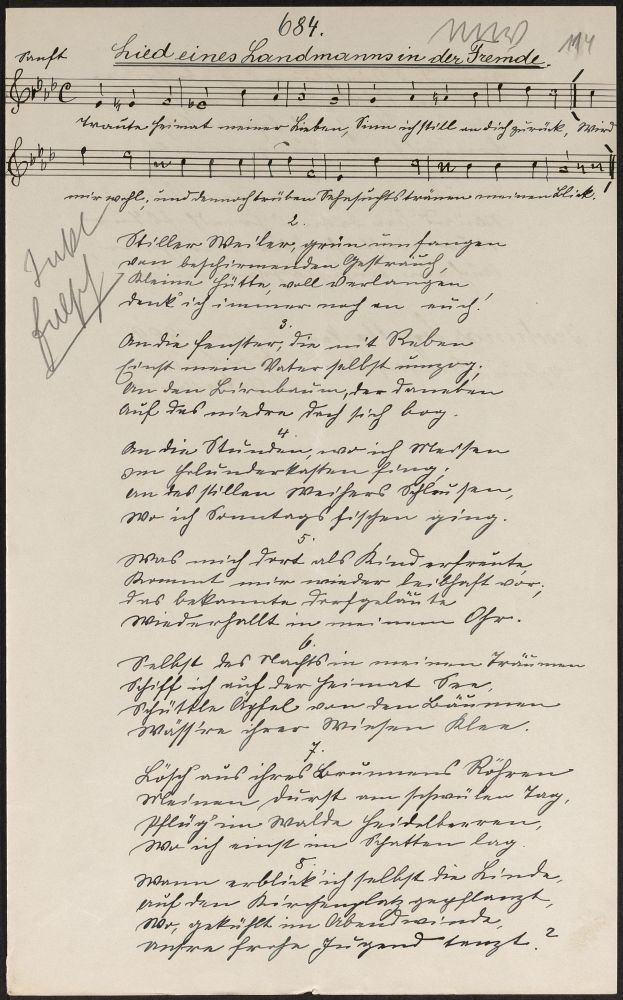 684.
Lied eines Landmanns in der Fremde.
114
Sanft
Traute Heimat meiner Lieben, Sinn ich still an dich zurück, Wird
mir wohl; und dennoch trüben Sehnsuchtstränen meinen Blick.
2.
Stiller Weiler, grün umfangen
von beschirmendem Gesträuch,
Kleine Hütte, voll Verlangen
Denk' ich immer noch an euch!
3.
An die Fenster, die mit Reben
Einst mein Vater selbst umzog;
An den Birnbaum, der daneben
Auf das niedre Dach sich bog.
4.
An die Stunden, wo ich Meisen
Im Holunderkasten fing;
An des stillen Weihers Schleusen,
Wo ich Sonntags fischen ging.
5.
Was mich dort als Kind erfreute,
Kommt mir wieder leibhaft vor;
Das bekannte Dorfgeläute
Wiederhallt in meinem Ohr.
6.
Selbst des Nachts in meinen Träumen
Schiff ich auf der Heimat See,
Schüttle Äpfel von den Bäumen
Wäss're ihrer Wiesen Klee.
7.
Lösch' aus ihres Brunnens Röhren
Meinen Durst am schwülen Tag,
Pflüg' im Walde Heidelbeeren,
Wo ich einst im Schatten lag.
8.
Wann erblick' ich selbst die Linde,
Auf den Kirchenplatz gepflanzt,
Wo, gekühlt im Abendwinde,
Unsre frohe Jugend tanzt?